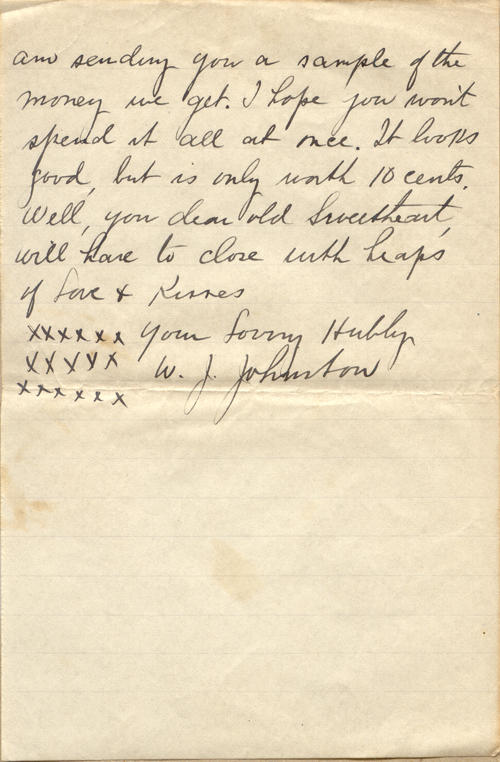 am sending you a sample of the
money we get. I hope you won't
spend it all at once. It looks
good, but is only worth 10 cents.
Well, you dear old Sweetheart,
will have to close with heaps
of Love & Kisses
xxxxxx Your Loving Hubby
xxxxx W. J. Johnston
xxxxxx